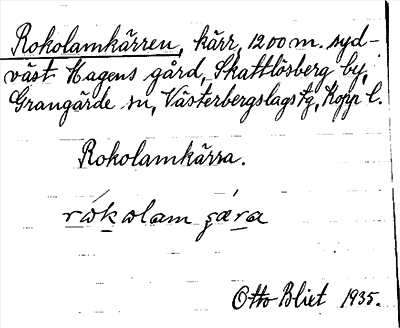 Rokolamkärren, kärr, 1200 m. syd-
väst Hagens gård, Skattlösberg by,
Grangärde sn, Västerbergslags tg, Kopp l.
Rokolamkärra.
Otto Blixt 1935.